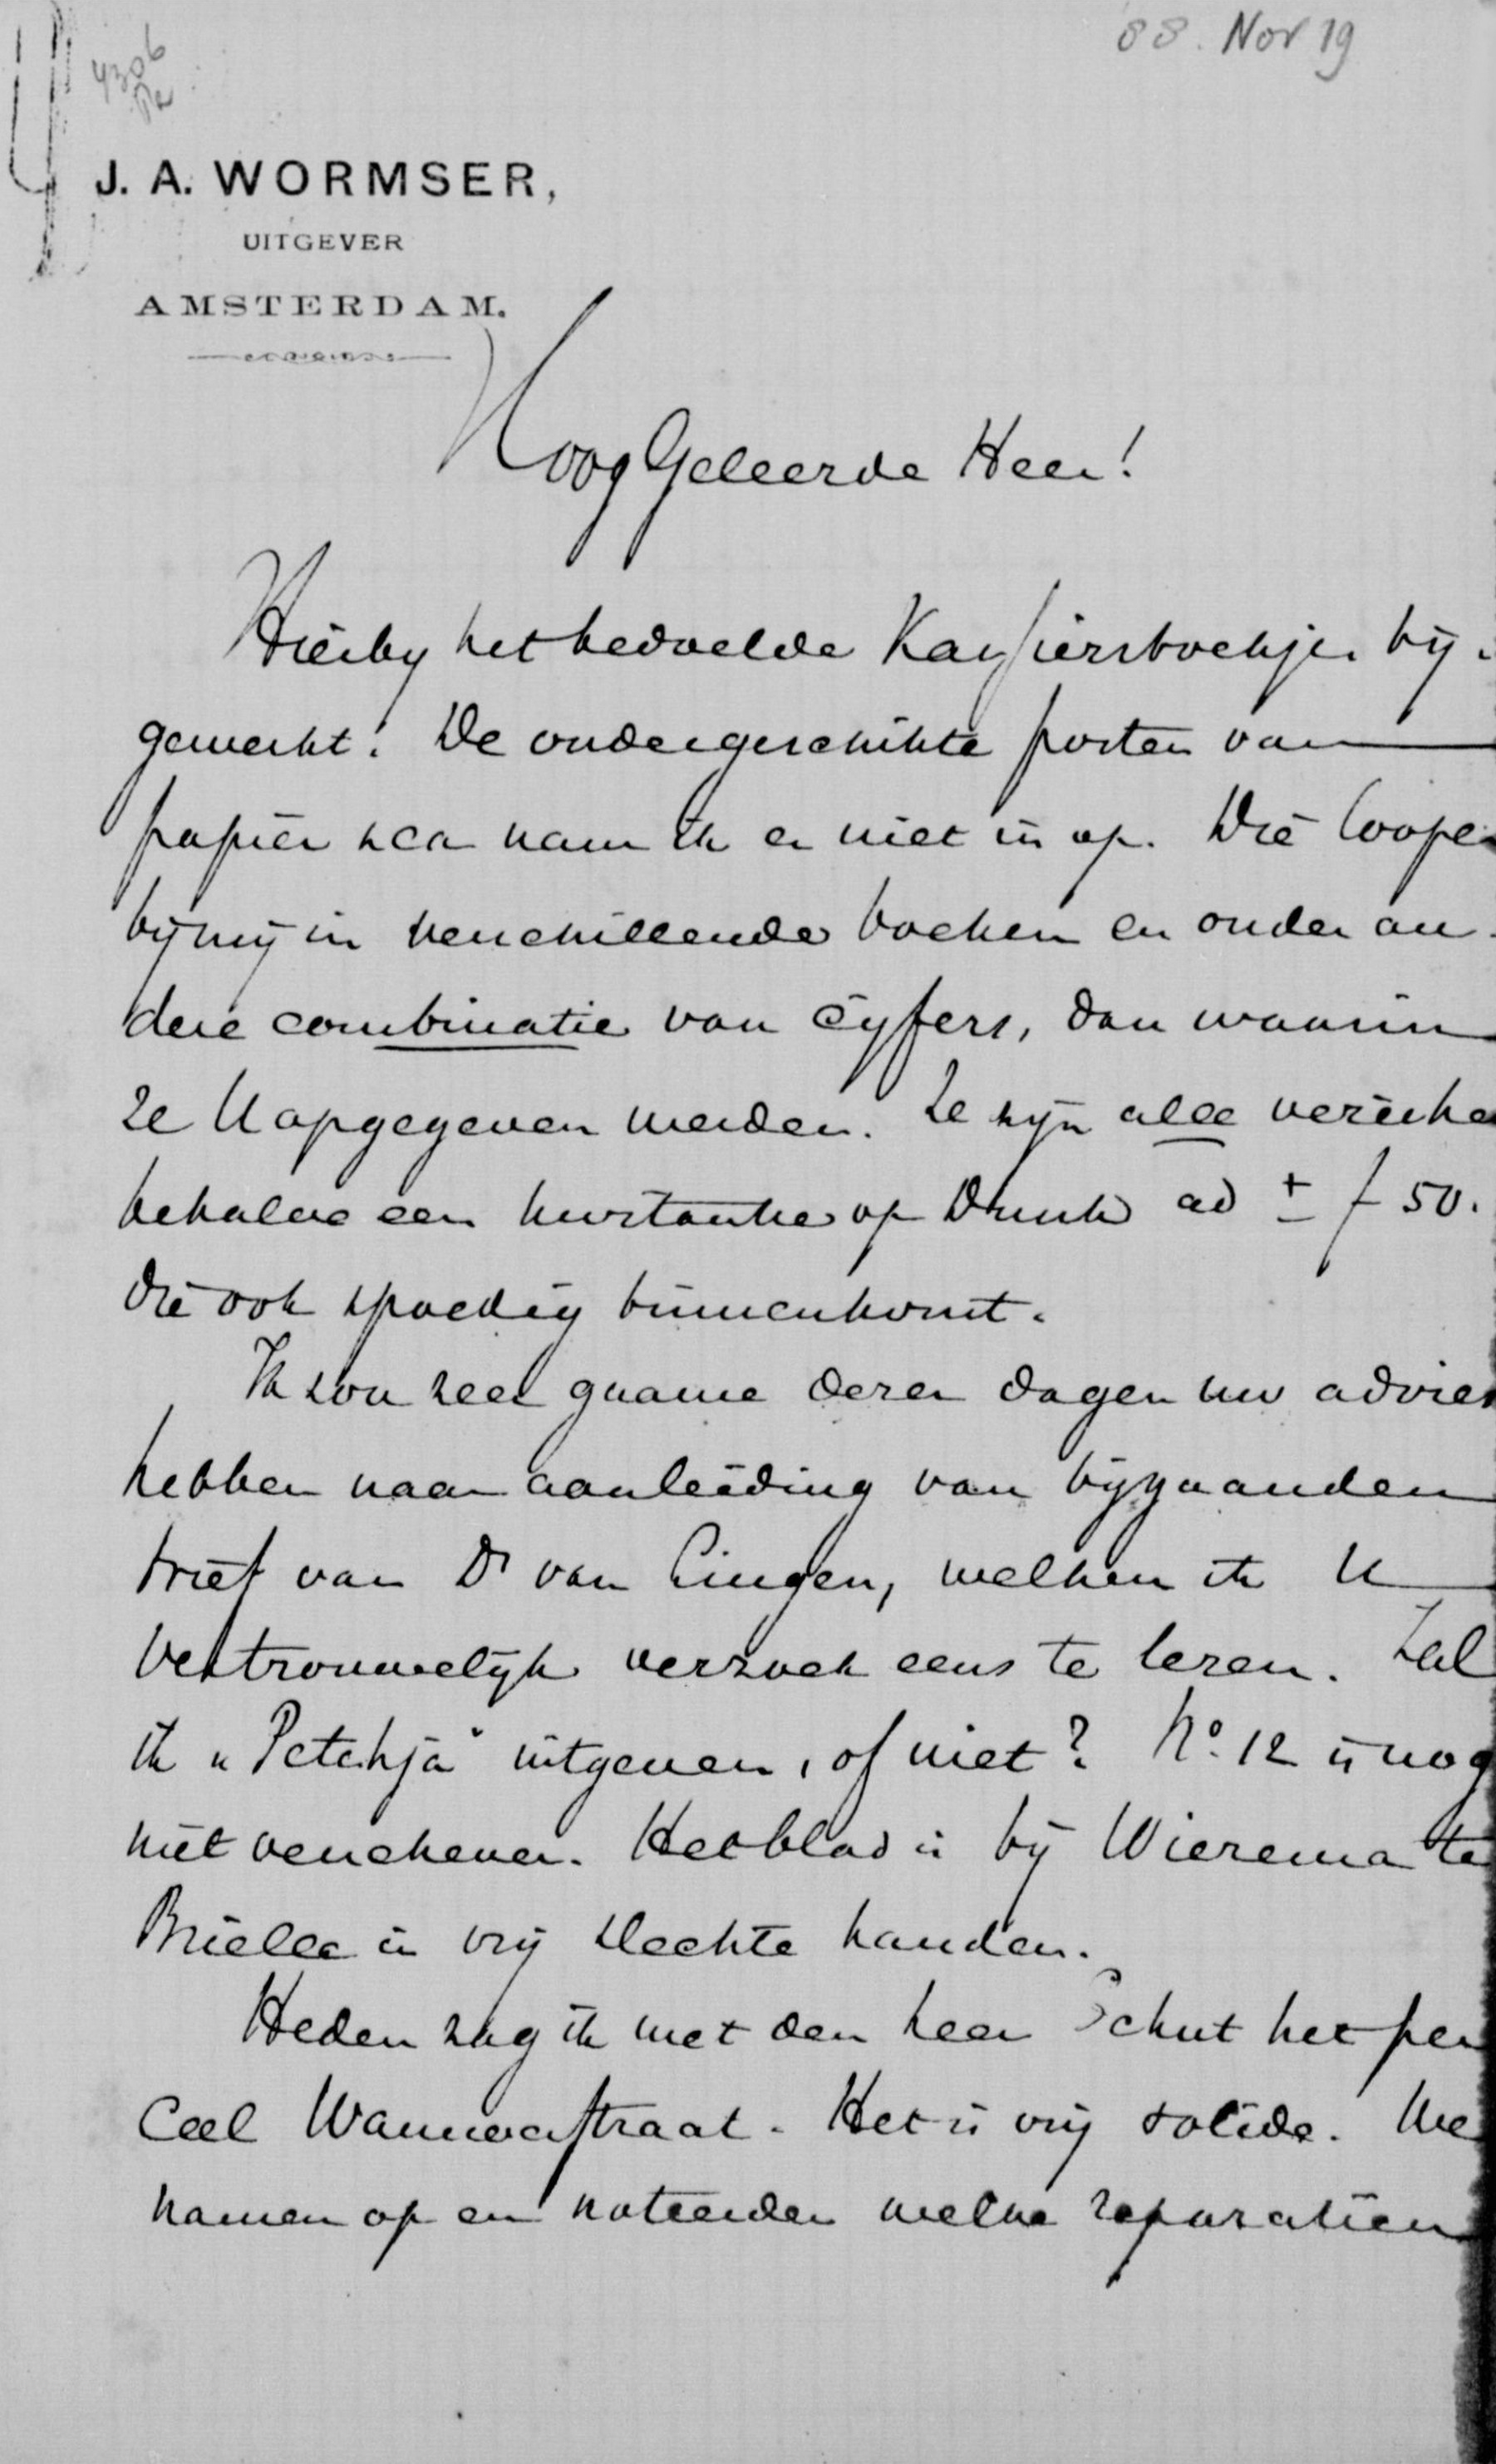 88. Nov 19
4306
J. A. WORMSER,
UITGEVER
AMSTERDAM.
Hooggeleerde Heer!
Hierby het bedoelde Kassiersboekje bij-
gewerkt. De ondergeschikte posten van
papier nam ik er niet in op. Die loopen
bij mij in verschillende boeken en onder an-
dere combinatie van cyfers, dan waarin
ze U opgegeven werden. Ze zyn alle verzeke
behalve een op Drunk ad ± f 50.
die ook spoedig binnenkomt.
Ik zou zeer gaarne dezer dagen uw advies
hebben naar aanleiding van bijgaanden
brief van Dr van Lingen, welken ik U
vertrouwelijk verzoek eens te lezen. Zal
ik „Petahja" uitgeven, of niet? No. 12 is nog
niet verschenen. Het blad is bij Wierema te
Brielle in vrij slechte handen.
Heden zag ik met den heer Schut het per
ceel straat. Het is vrij solide. We
namen op en noteerden welke reparatien